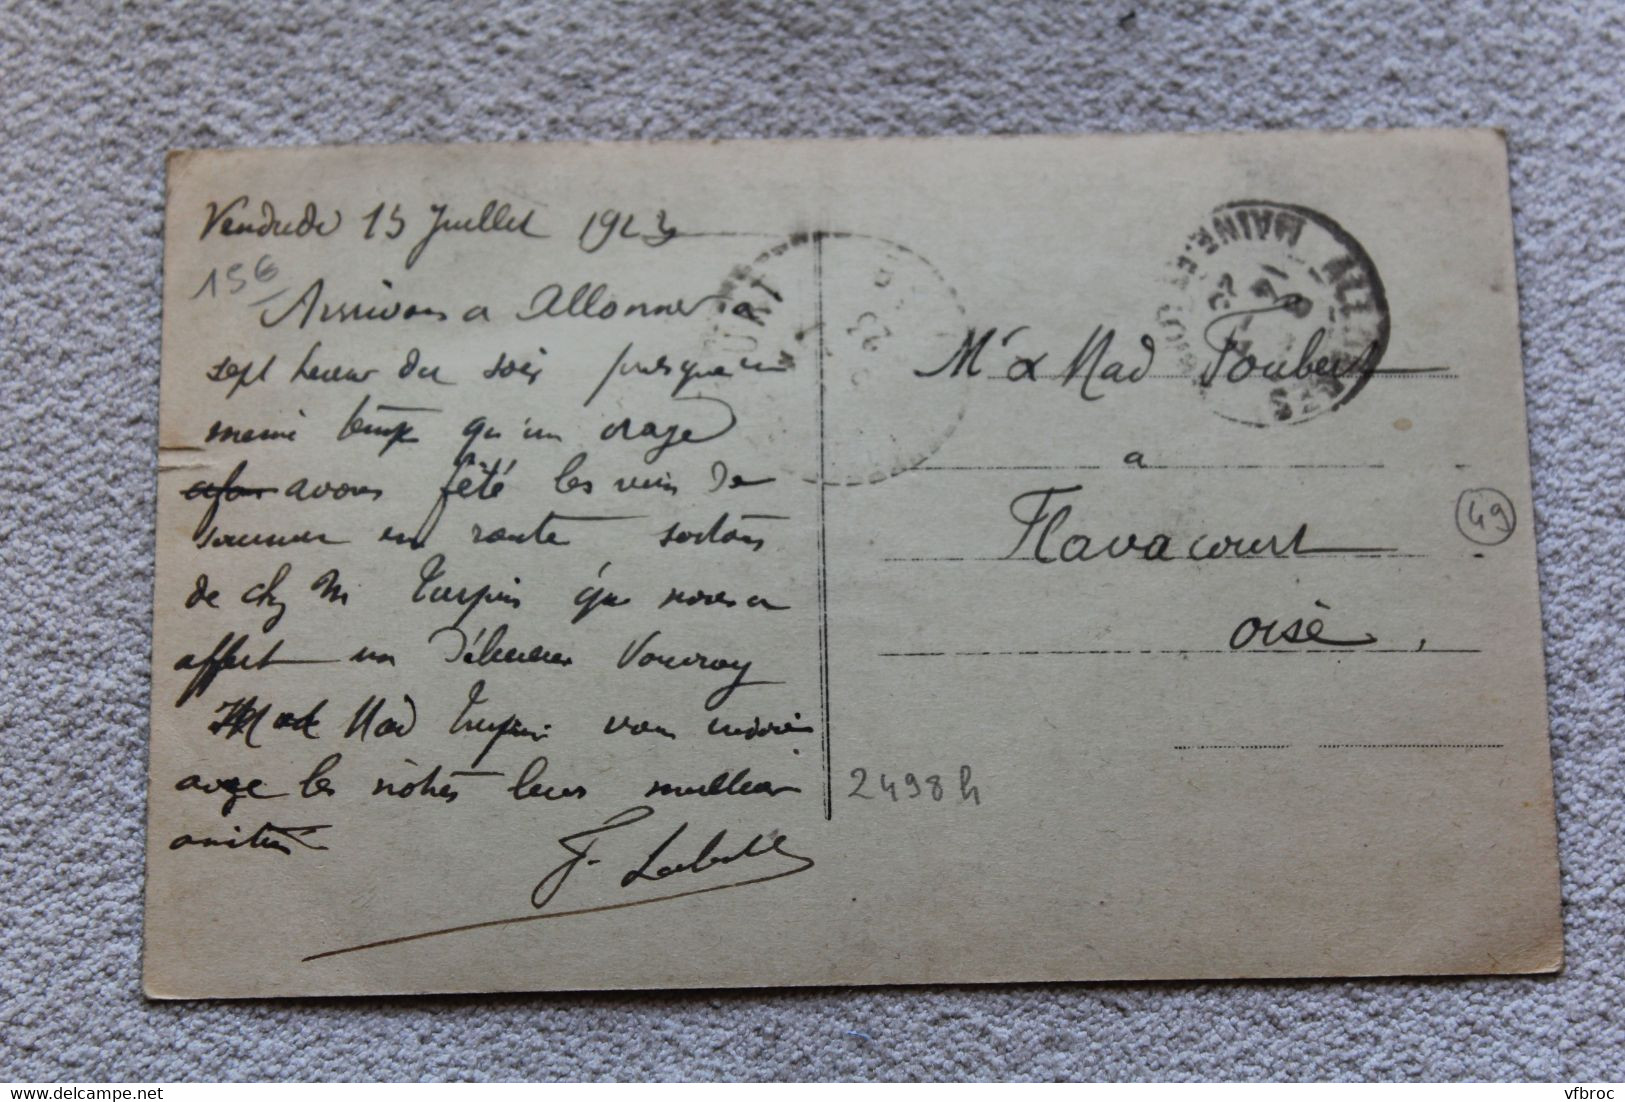 Vendredi 13 Juillet 1923
15€
Arrivons a Allonnes a
sept heures du soir presque en
meme temps qu'un orage
avons fêté les vins de
saumur en route sortons
de chez M Turpin que nous a
offert un délicieux Vouvray
M et Mad Turpin vous
avec les nôtres leurs meilleur
amitiés
F. Labelle
Mr & Mad Toubert
a
Flavacourt
Oise.
49
2498 h
ALLONNES
MAINE-ET-LOIRE
23
vfbroc